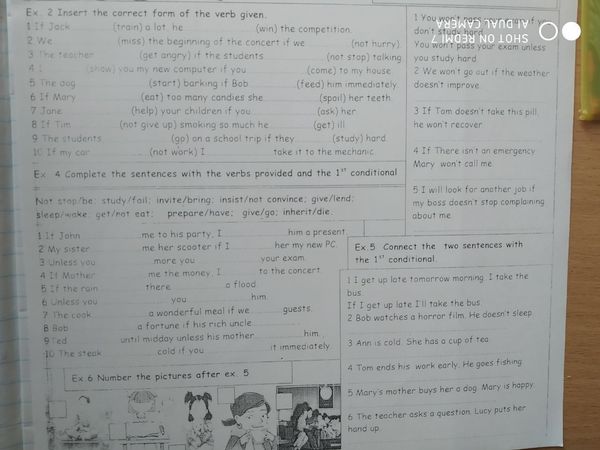 Ex. 2 Insert the correct form of the verb given.
1 If Jack (train) a lot he (win) the competition.
2 We (miss) the beginning of the concert if we (not hurry).
3 The teacher (get angry) if the students (not stop) talking
4 I (show) you my new computer if you (come) to my house
5 The dog (start) barking if Bob (feed) him immediately
6 If Mary (eat) too many candies she (spoil) her teeth.
7 Jane (help) your children if you (ask) her
8 If Tim (not give up) smoking so much he (get) ill
9 The students (go) on a school trip if they (study) hard.
10 If my car (not work) I take it to the mechanic
Ex 4 Complete the sentences with the verbs provided and the 1st conditional
Not stop/be; study/fail; invite/bring; insist/not convince; give/lend;
sleep/wake; get/not eat; prepare/have; give/go; inherit/die.
1 If John me to his party, I him a present.
2 My sister me her scooter if I her my new PC.
3 Unless you more you your exam.
4 If Mother me the money, I to the concert.
5 If the rain there a flood.
6 Unless you you him.
7 The cook a wonderful meal if we guests.
8 Bob a fortune if his rich uncle
9 Ted until midday unless his mother him.
10 The steak cold if you it immediately.
Ex 6 Number the pictures after ex. 5
1 You won't pass if you
don't study hard.
You won't pass your exam unless
you study hard.
2 We won't go out if the weather
doesn't improve.
3 If Tom doesn't take this pill,
he won't recover
4 If There isn't an emergency
Mary won't call me.
5 I will look for another job if
my boss doesn't stop complaining
about me
Ex.5 Connect the two sentences with
the 1st conditional.
1 I get up late tomorrow morning. I take the
bus.
If I get up late I'll take the bus.
2 Bob watches a horror film. He doesn't sleep.
3 Ann is cold. She has a cup of tea.
4 Tom ends his work early. He goes fishing
5 Mary's mother buys her a dog. Mary is happy.
6 The teacher asks a question. Lucy puts her
hand up.
SHOT ON REDMI 7
AI DUAL CAMERA